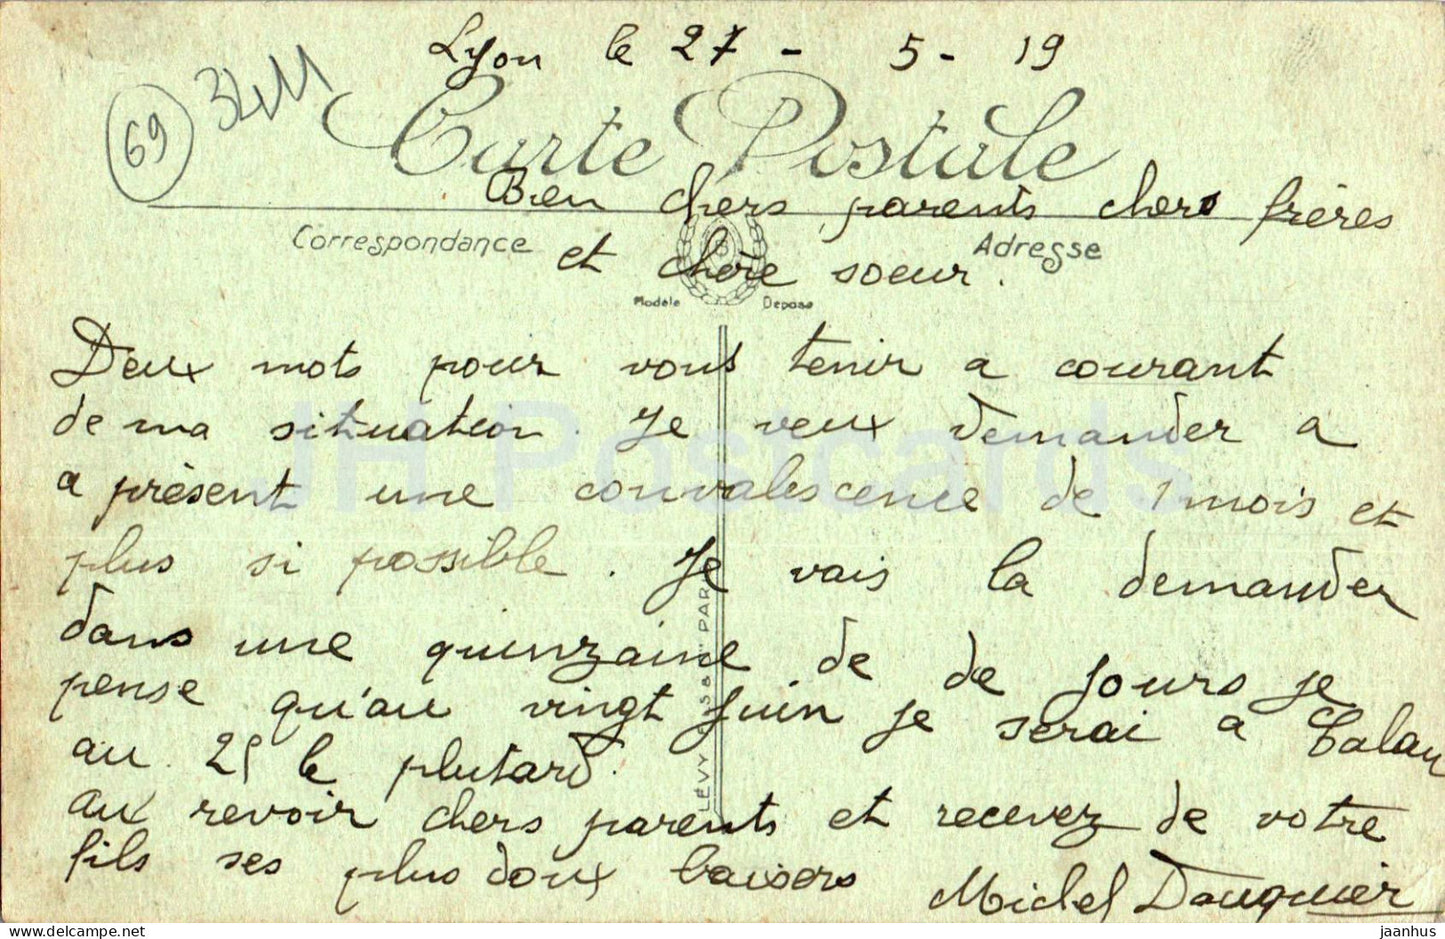 Lyon le 27 - 5 - 19
69
3411
Carte Postale
Bien chers parents chers frères
Correspondance
Adresse
et chère soeur.
Modèle Déposé
Deux mots pour vous tenir a courant
de ma situation. Je veux demander a
a présent une convalescence de 1 mois et
plus si possible. Je vais la demander
dans une quinzaine de de jours je
pense qu'au vingt juin je serai a Talau
au 25 le plutard.
aux revoir chers parents et recevez de votre
fils ses plus doux baisers Michel Dauquier
LÉVY PAR
JH Postcards
delcampe.net
jaanhus